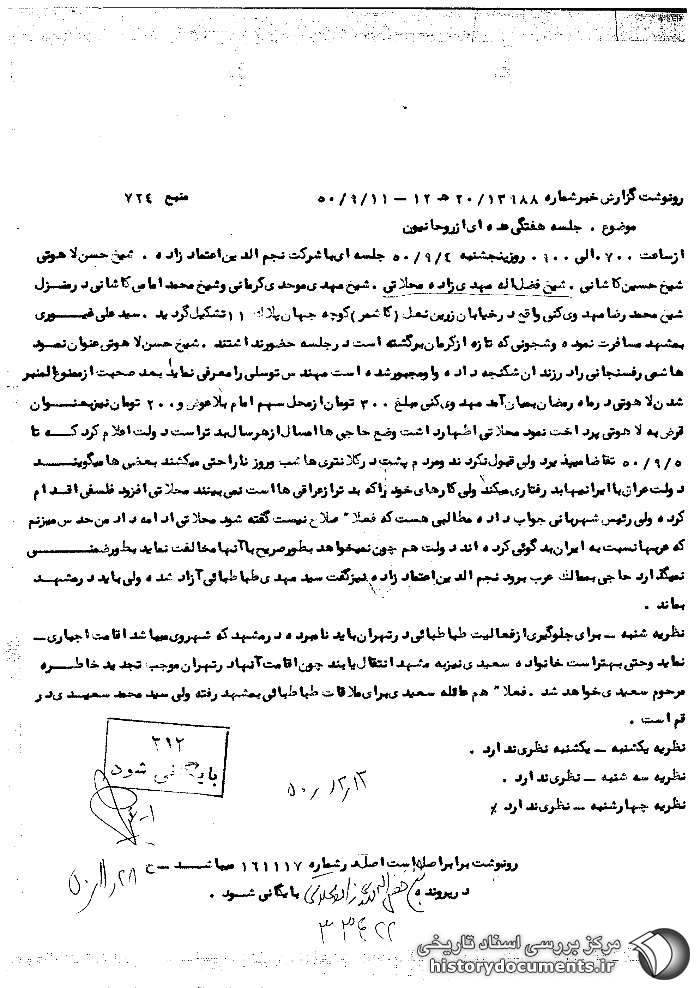 رونوشت گزارش خبر شماره ۲۰/۱۳۹۸۸ هـ ۱۲ – ۵۰/۹/۱۱ منبع ۷۲۴
موضوع . جلسه هفتگی عده ای از روحانیون
از ساعت ۷۰۰ الی ۹۰۰ روز پنجشنبه ۵۰/۹/٤ جلسه ای با شرکت نجم الدین اعتماد زاده . شیخ حسن لاهوتی
شیخ حسین کاشانی . شیخ فضل اله مهدی زاده محلاتی . شیخ مهدی موحدی کرمانی و شیخ محمد امامی کاشانی در منزل
شیخ محمد رضا مهدوی کنی واقع در خیابان زرین نعل (کاشمر) کوچه جهان پلاک ۱۱ تشکیل گردید . سید علی غیوری
بمشهد مسافرت نموده و شجونی که تازه از کرمان برگشته است در جلسه حضور نداشتند . شیخ حسن لاهوتی عنوان نمود
هاشمی رفسنجانی را در زندان شکنجه داده و او مجبور شده است مهندس توسلی را معرفی نماید بعد صحبت از ممنوع المنبر
شدن لاهوتی در ماه رمضان بمیان آمد مهدوی کنی مبلغ ۳۰۰ تومان از محل سهم امام بلاعوض و ۲۰۰ تومان نیز بعنوان
قرض به لاهوتی پرداخت نمود محلاتی اظهار داشت وضع حاجی ها امسال از هر سال بدتر است دولت اعلام کرد که تا
۵۰/۹/۵ تقاضا میپذیرد ولی قبول نکردند و مردم پشت در کلانتری ها شب و روز ناراحتی میکشند بعضی ها میگویند
دولت عراق با ایرانیها بد رفتاری میکند ولی کارهای خود را که بدتر از عراقی ها است نمی بینند محلاتی افزود فلسفی اقدام
کرده ولی رئیس شهربانی جواب داده مطالبی هست که فعلا" صلاح نیست گفته شود محلاتی ادامه داد من حدس میزنم
که عربها نسبت به ایران بد گوئی کرده اند دولت هم چون نمیخواهد بطور صریح با آنها مخالفت نماید بطور ضمنی
نمیگذارد حاجی بممالک عرب برود نجم الدین اعتماد زاده نیز گفت سید مهدی طباطبائی آزاد شده ولی باید در مشهد
بماند .
نظریه شنبه – برای جلوگیری از فعالیت طباطبائی در تهران باید نامبرده در مشهد که شهر وی میباشد اقامت اجباری –
نماید و حتی بهتر است خانواده سعیدی نیز به مشهد انتقال یابند چون اقامت آنها در تهران موجب تجدید خاطره
مرحوم سعیدی خواهد شد . فعلا" هم عائله سعیدی برای ملاقات طباطبائی بمشهد رفته ولی سید محمد سعیدی در
قم است .
نظریه یکشنبه – یکشنبه نظری ندارد .
نظریه سه شنبه – نظری ندارد .
نظریه چهارشنبه – نظری ندارد ٪
۳۱۲
بایگانی شود
۵۰/۱۲/۱۳
رونوشت برابر اصل است اصل در شماره ۱۶۱۱۱۷ میباشد – ح
در پرونده شیخ فضل اله مهدیزاده محلاتی بایگانی شود .
۵۰/۱۱/۲۸
مرکز بررسی اسناد تاریخی
historydocuments.ir